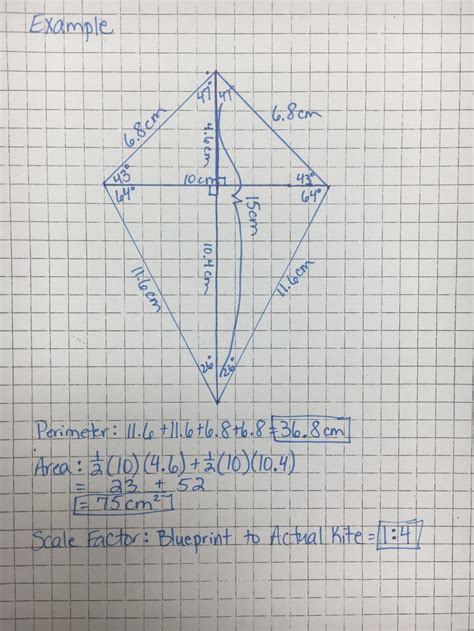 Example
47° 47°
6.8cm 6.8cm
4.6cm
43° 10cm 43°
64° 64°
15cm
10.4cm
11.6cm 11.6cm
26° 26°
Perimeter: 11.6 + 11.6 + 6.8 + 6.8 = 36.8 cm
Area: ½(10)(4.6) + ½(10)(10.4)
= 23 + 52
= 75 cm²
Scale Factor: Blueprint to Actual Kite = 1:4